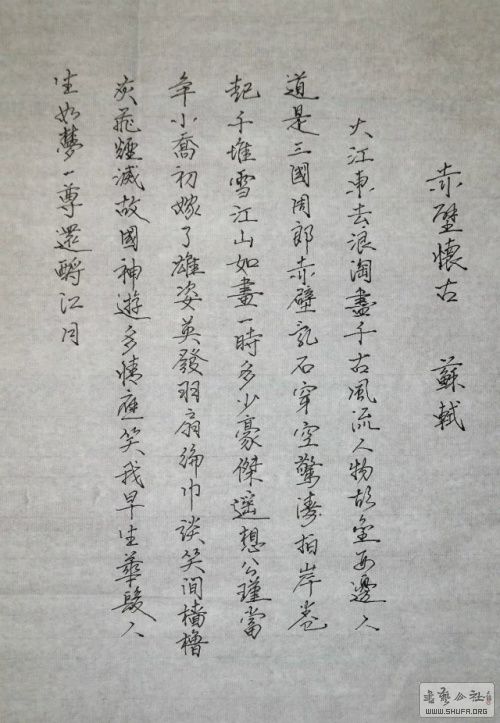 赤壁懷古 蘇軾
大江東去浪淘盡千古風流人物故壘西邊人
道是三國周郎赤壁亂石穿空驚濤拍岸卷
起千堆雪江山如畫一時多少豪傑遥想公瑾當
年小喬初嫁了雄姿英發羽扇綸巾談笑间檣櫓
灰飛煙滅故國神遊多情應笑我早生華髮人
生如夢一尊還酹江月
書藝公社
WWW.SHUFA.ORG